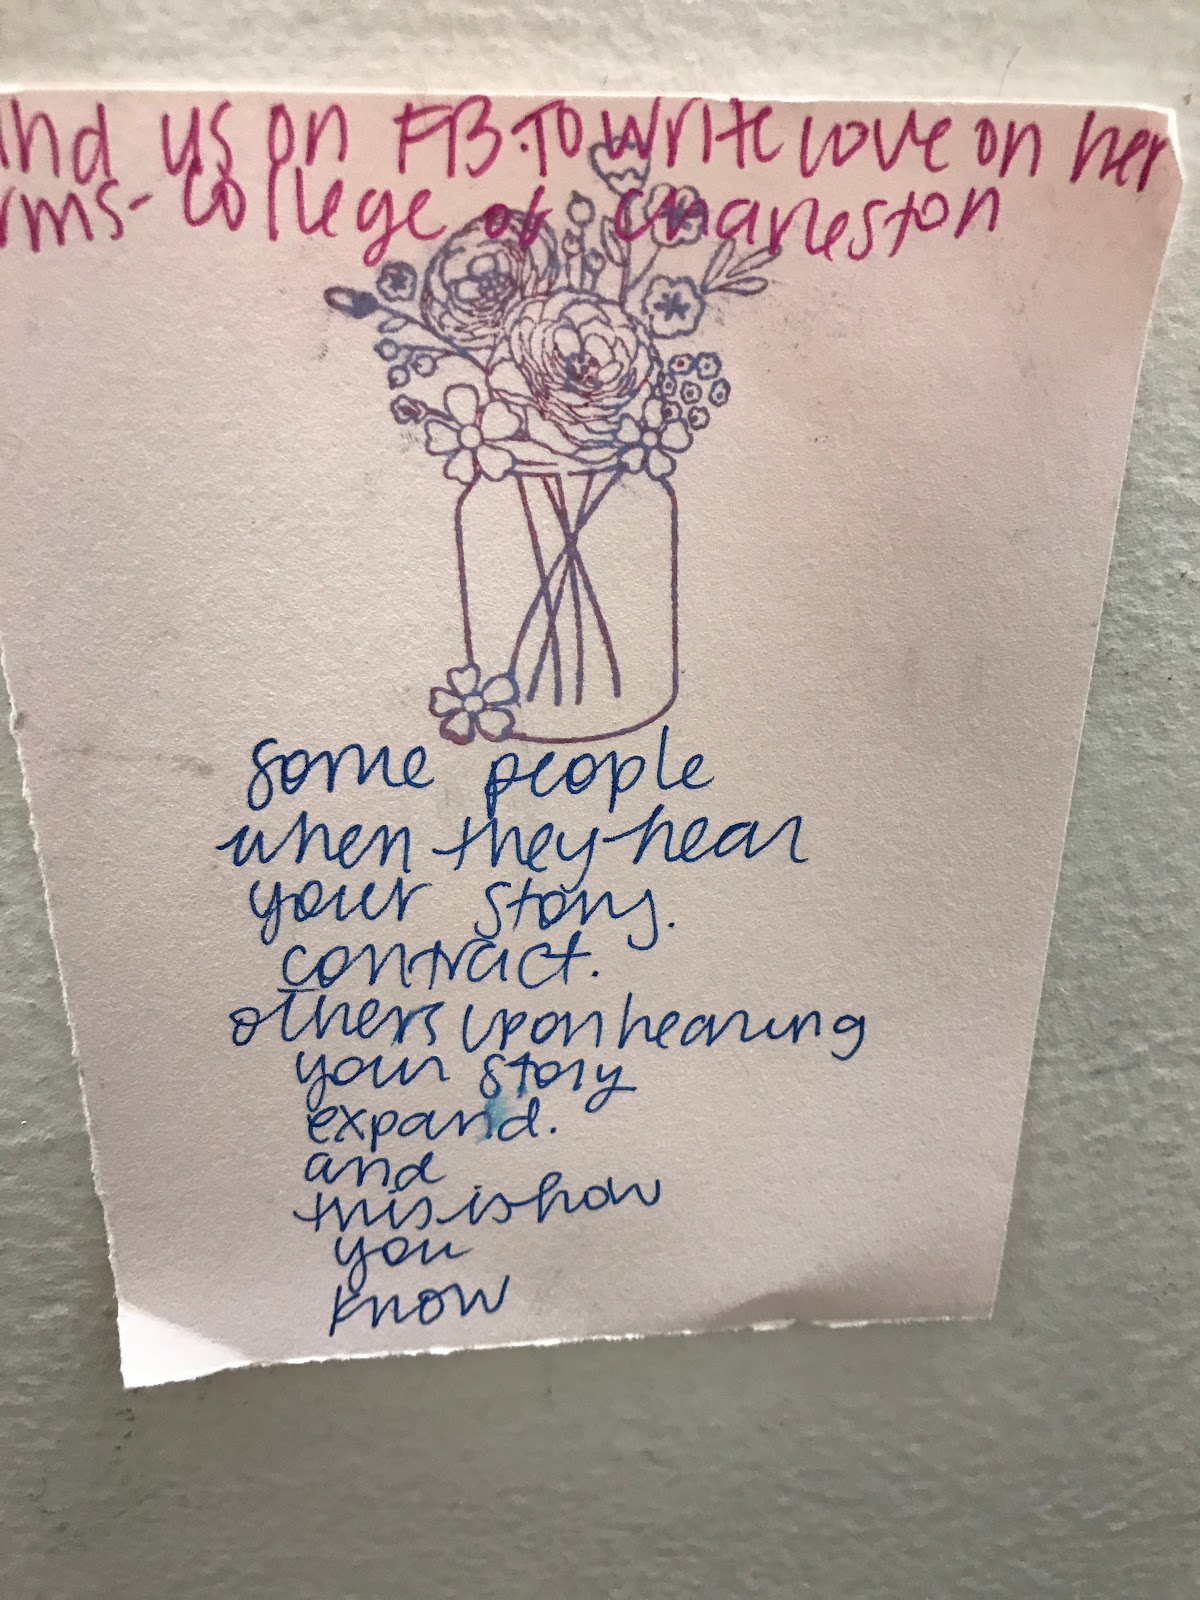 ind us on FB. To write love on her
rms - College of Charleston
some people
when they hear
your story.
contract.
others upon hearing
your story
expand.
and
this is how
you
know